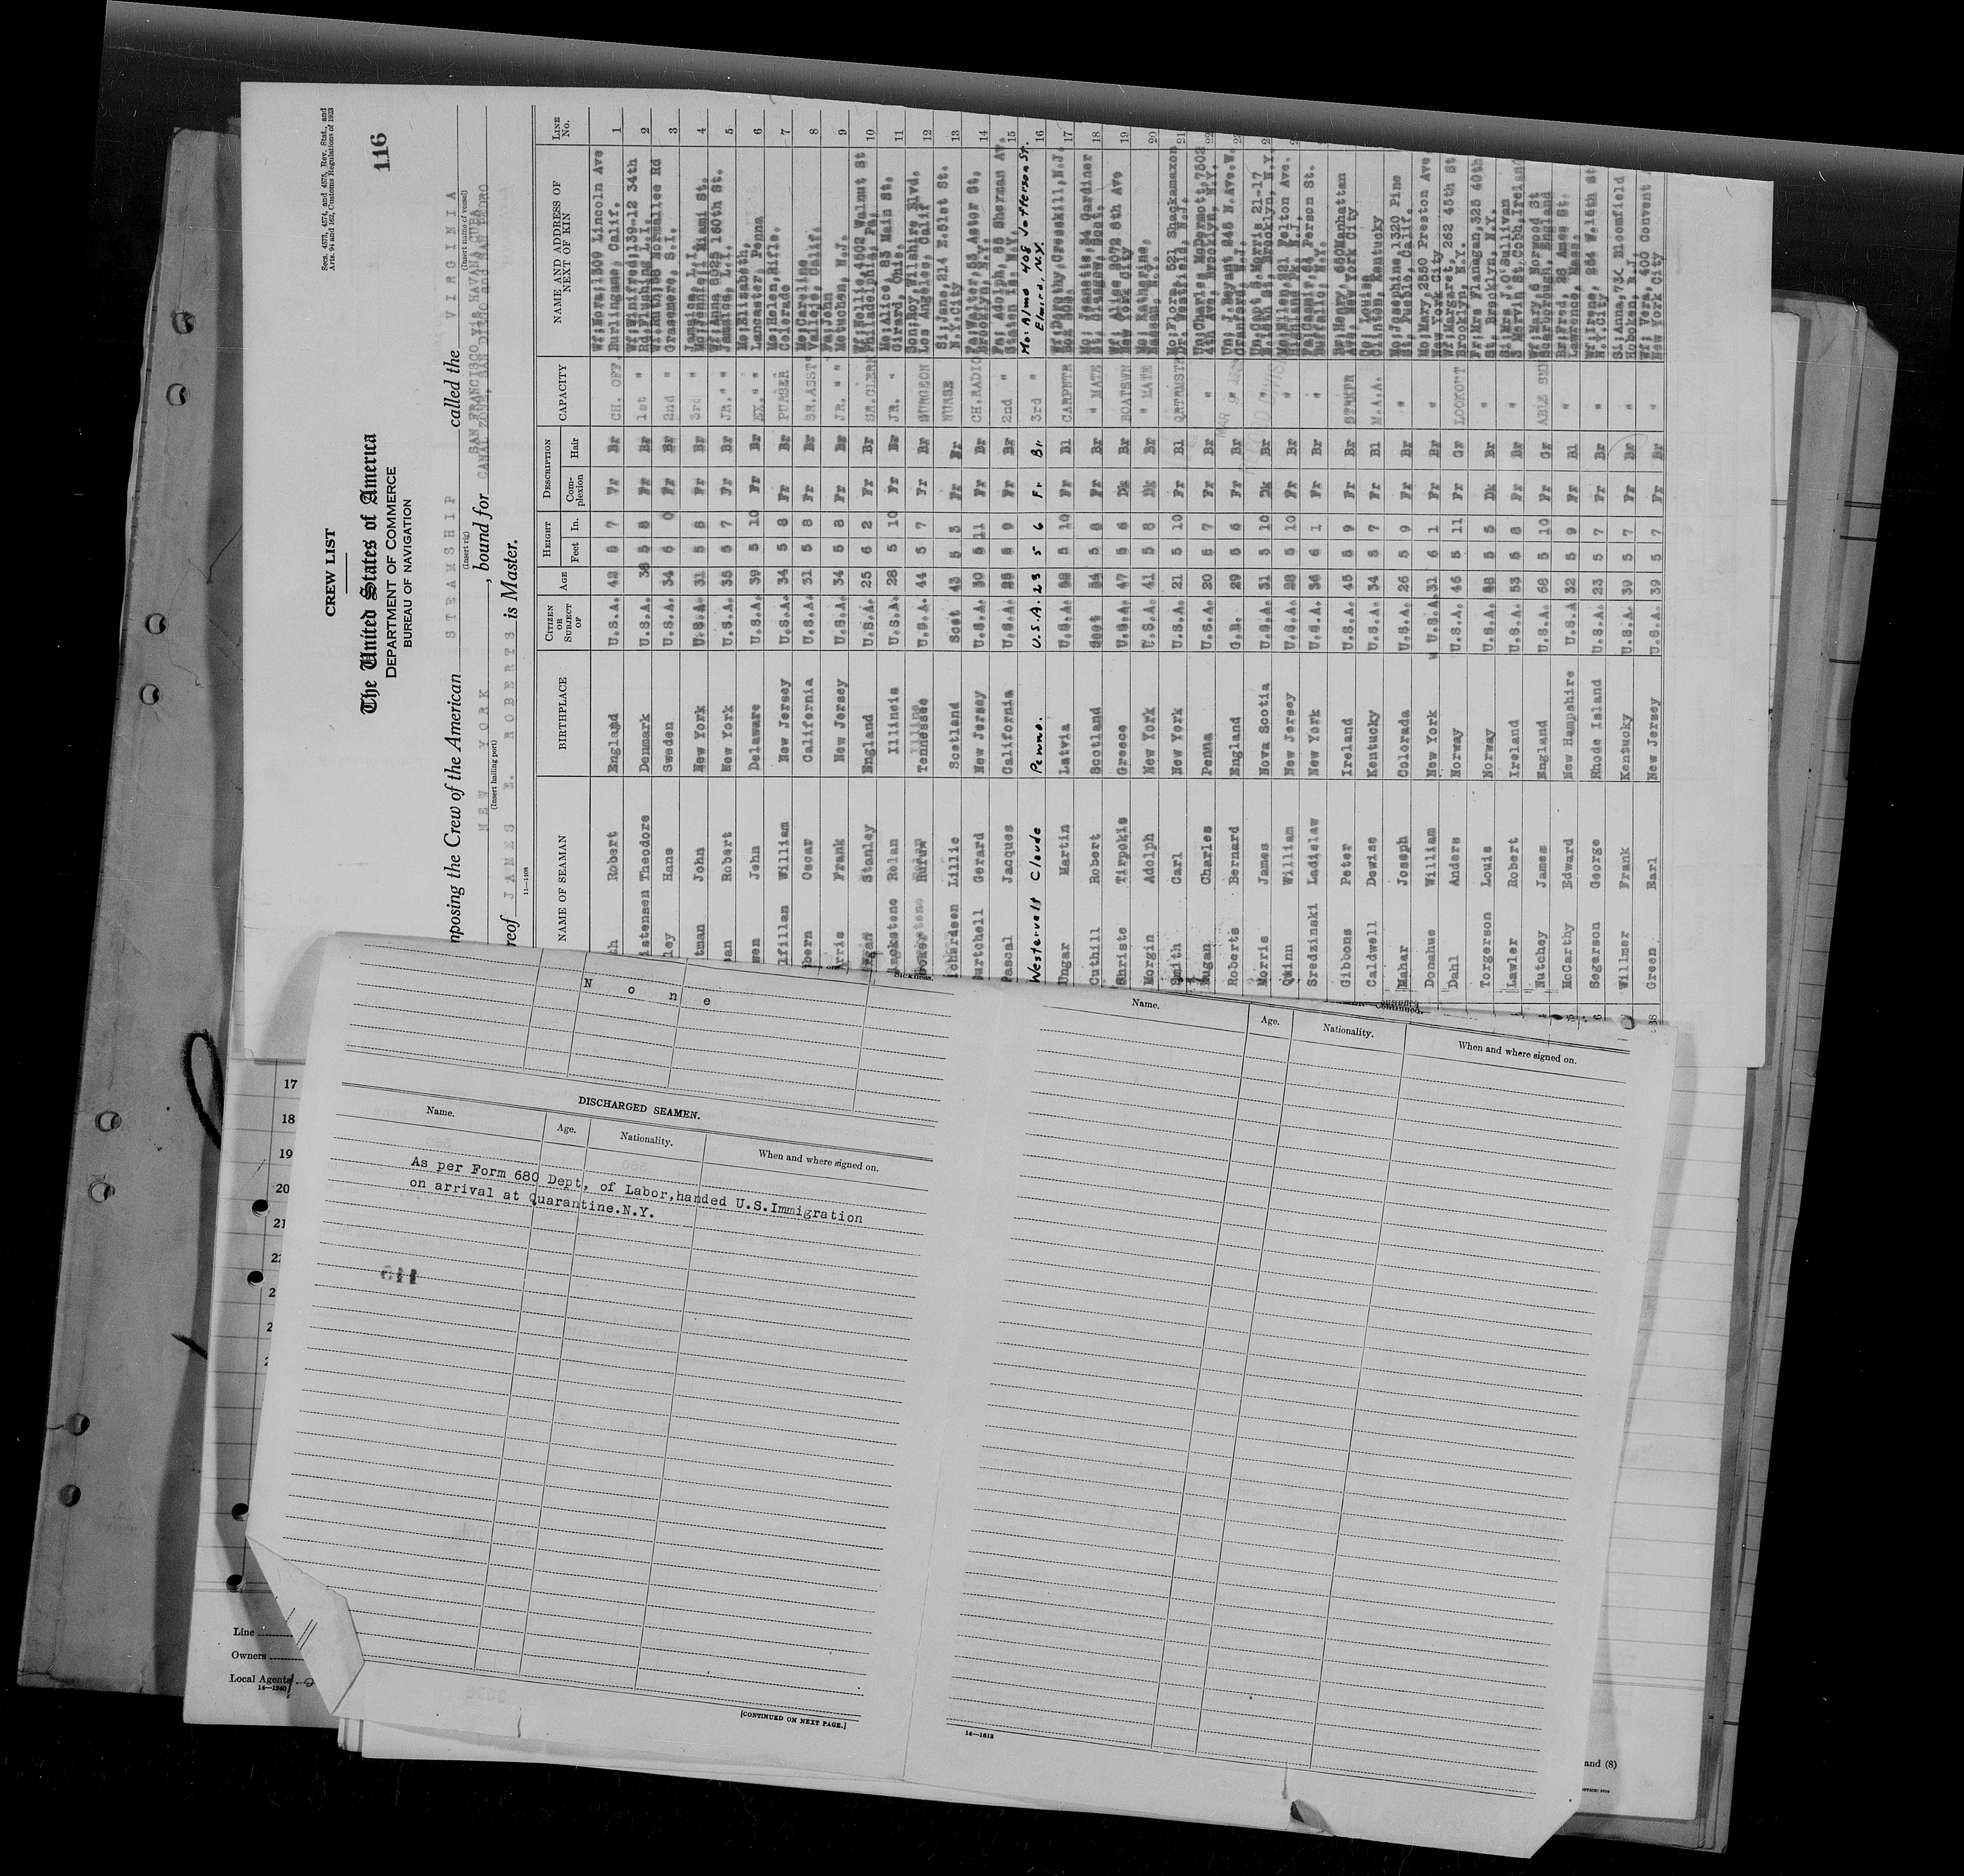 Secs. 4573, 4574, and 4575, Rev. Stat., and
Arts. 94 and 162, Customs Regulations of 1923
116
CREW LIST
The United States of America
DEPARTMENT OF COMMERCE
BUREAU OF NAVIGATION
mposing the Crew of the American STEAMSHIP called the VIRGINIA
(Insert rig) (Insert name of vessel)
NEW YORK , bound for SAN FRANCISCO via HAVANA CUBA
CANAL ZONE, SAN DIEGO and SAN PEDRO
(Insert hailing port)
reof JAMES E. ROBERTS is Master.
11—1408
NAME OF SEAMAN BIRTHPLACE CITIZEN OR SUBJECT OF AGE HEIGHT Feet In. DESCRIPTION Complexion Hair CAPACITY NAME AND ADDRESS OF NEXT OF KIN LINE No.
th Robert England U.S.A. 42 5 7 Fr Br CH. OFF. Burlingame, Calif. 1
istensen Theodore Denmark U.S.A. 38 5 8 Fr Br 1st " 2
ley Hans Sweden U.S.A. 34 6 0 Fr Br 2nd " Grasemere, S.I. 3
tman John New York U.S.A. 31 5 8 Fr Br 3rd " 4
an Robert New York U.S.A. 35 5 7 Fr Br JR. " " Jamaica, L.I. 5
wen John Delaware U.S.A. 39 5 10 Fr Br EX. " " Mo; Elizabeth, Lancaster, Penna 6
lfillan William New Jersey U.S.A. 34 5 8 Fr Br PURSER Colorado 7
bern Oscar California U.S.A. 31 5 8 Fr Br SR.ASST " Calif. 8
rris Frank New Jersey U.S.A. 34 5 8 Fr Br JR. " " Fa; John Metuchen, N.J. 9
Stanley England U.S.A. 25 6 2 Fr Br SR.CLERK Wf; Nellie, 4502 Walnut St Philadelphia, Pa. 10
lackstone Rolan Illinois U.S.A. 28 5 10 Fr Br JR. " Mo; Alice, 83 Main St. Girard, Ohio. 11
Tennessee U.S.A. 44 5 7 Fr Br SURGEON Los Angeles, Calif 12
chardson Lillie Scotland Scot 43 5 3 Fr Br NURSE Si; Jane, 214 E.51st St. N.Y.City 13
urtchell Gerard New Jersey U.S.A. 30 5 11 Fr Br CH.RADIO Fa; Walter, 53 Aster St, Brooklyn, N.Y. 14
Pascal Jacques California U.S.A. 25 5 9 Fr Br 2nd " Fa; Adolph, 85 Sherman Av. Staten Is. N.Y. 15
Westervelt Claude Penna. U.S.A. 23 5 6 Fr. Br. 3rd " Mo: Alma 408 Jefferson St. Elmira, N.Y. 16
Ungar Martin Latvia U.S.A. 5 10 Fr Bl CARPNTR Wf; Dorothy, Cresskill, N.J. 17
Cuthill Robert Scotland Scot 34 5 8 Fr Br " MATE Mo; Jeanette, 34 Gardiner St. Glasgow, Scot. 18
Christe Greece U.S.A. 47 5 6 Dk Br BOATSWN Wf; Alice 3072 8th Ave New York City 19
Morgin Adolph New York U.S.A. 41 5 8 Dk Br " MATE Mo; Katherine, Nassau, N.Y. 20
Smith Carl New York U.S.A. 21 5 10 Fr Bl QRTRMSTR Mo; Flora, 521 Shackamaxon Dr. Westfield, N.J. 21
Dugan Charles Penna U.S.A. 20 5 7 Fr Br " Un; Charles McDermott, 7502 4th Ave. Brooklyn, N.Y. 22
Roberts Bernard England G.B. 29 5 6 Fr Br " Un. J. Bryant 245 N.Ave.W. Cranford, N.J.
Morris James Nova Scotia U.S.A. 31 5 10 Dk Br " Un; Capt S. Morris 21-17 Brooklyn, N.Y.
Quinn William New Jersey U.S.A. 28 5 10 Fr Br " 221 Felton Ave. Highland Pk. N.J.
Sredzinski Ladislaw New York U.S.A. 36 6 1 Fr Br " Fa; Casmir, 64 Person St. Buffalo, N.Y.
Gibbons Peter Ireland U.S.A. 45 5 9 Fr Br STRKPR Br; Henry, 660 Manhattan Ave. New York City
Caldwell Dewise Kentucky U.S.A. 34 5 7 Fr Bl M.A.A. Co; Louise Clinton, Kentucky
Mahar Joseph Colorada U.S.A. 26 5 9 Fr Br " Mo; Josephine, 1320 Pine St, Pueblo, Calif.
Donahue William New York U.S.A. 31 6 1 Fr Br " Mo; Mary, 2550 Preston Ave New York City
Dahl Anders Norway U.S.A. 46 5 11 Fr Gr LOOKOUT Wf; Margaret, 262 45th St Brooklyn, N.Y.
Torgerson Louis Norway U.S.A. 5 5 Dk Br " Fr; Mrs Flanagan, 325 40th St. Brooklyn, N.Y.
Lawler Robert Ireland U.S.A. 53 5 8 Fr Br " Si; Mrs J. O'Sullivan St. Cobh, Ireland
Nutchey James England U.S.A. 68 5 10 Fr Gr ABLE SMN Wf; Mary, 6 Norwood St Scarborough, England
McCarthy Edward New Hampshire U.S.A 32 5 9 Fr Bl " Br; Fred, 28 Ames St. Lawrence, Mass.
Segerson George Rhode Island U.S.A. 23 5 7 Fr Br " Wf; Irene, 254 W.15th St N.Y.City
Willmer Frank Kentucky U.S.A. 39 5 7 Fr Br " Si; Anna, Bloomfield Hoboken, N.J.
38 Green Earl New Jersey U.S.A. 39 5 7 Fr Br " Wf; Vera, 400 Convent New York City
Sickness.
None
DISCHARGED SEAMEN.
Name. Age. Nationality. When and where signed on.
As per Form 680 Dept, of Labor,handed U.S.Immigration
on arrival at Quarantine.N.Y.
[CONTINUED ON NEXT PAGE.]
Continued.
Name. Age. Nationality. When and where signed on.
14—1613
17
18
19
20
21
Line
Owners
Local Agents
14—1240
and (8)